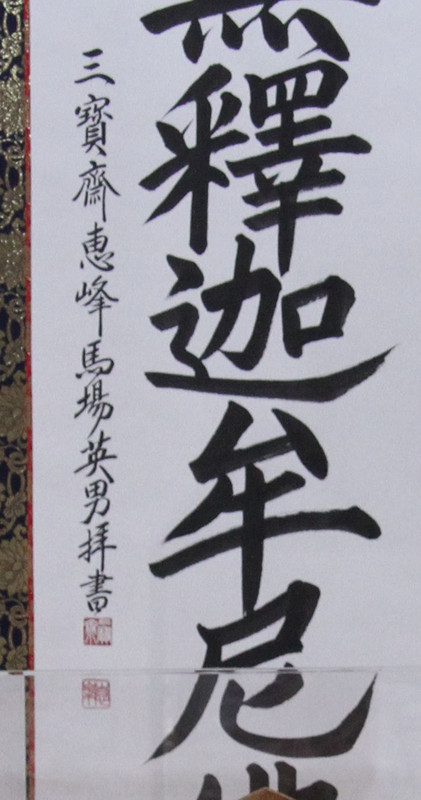 釋迦牟尼
三寶齋恵峰馬場英男拝書